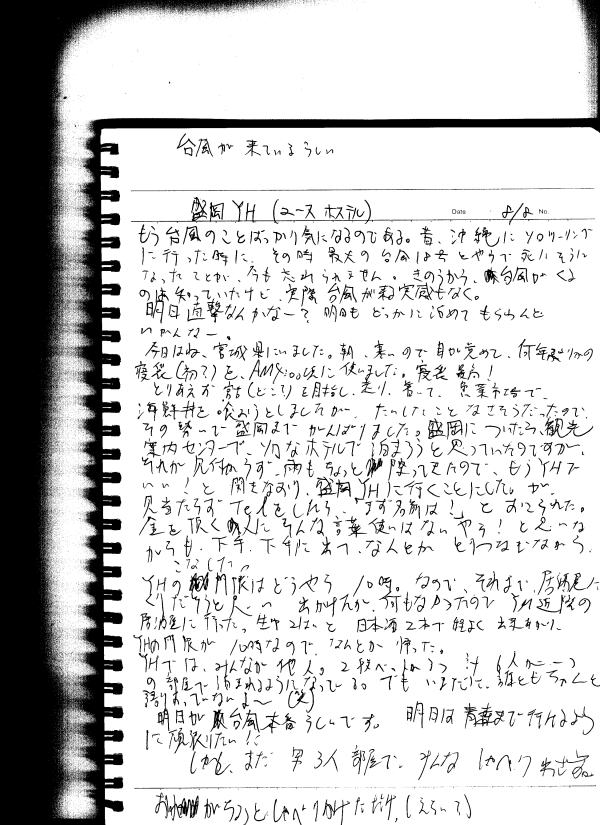 台風が 来ているらしい
盛岡 YH (ユース ホステル) Date 8/2 No.
もう 台風のことばっかり気になるのである。昔、沖縄に ソロツーリング
に行った時に、その時 最大の 台風 とやらで 死にそうに
なったことが、今も 忘れられません。きのうから、台風が くる
のは 知っていたけど、実際 台風が 実感もなく。
明日 直撃なんかなー? 明日も どっかに泊めて もらわんと
いかんなー。
今日はね、宮城県にいました。朝、寒いので 目が覚めて、何年ぶりかの
寝袋 (初?) を、に 使いました。寝袋 最高!
とりあえず 宮古 (どこ?) を目指し、走り、着いて、魚菜市場で、
海鮮丼を 食おうとしましたが、たいしたことなさそうだったので、
その 勢いで 盛岡まで がんばりました。盛岡に ついたら、観光
案内センターで、ソロなホテルで 泊まろうと 思っていたのですが、
それが 見付からず、雨も ちょっと 降ってきたので、もう YHで
いい! と 開きなおり、盛岡 YHに 行くことにした。が、
見当たらず Telをしたら、「まず名前は!」と すてられた。
金を頂く 人に そんな 言葉使いはないやろ! と思いな
がらも、下手、下手に出て、なんとか とりつなむながら、
こなした。
YHの 門限は どうやら 10時。なので、それまで、居酒屋に
くりだそうと思い 出かけたが、何もなかったので YH近所の
居酒屋に 行った。生中 2はいと 日本酒 2本で 程よく 出来あがり
YHの門限が 10時なので、なんとか 帰った。
YHでは、みんなが 他人。2段ベッ 3つ 計 6人が 一つ
の部屋で 泊まれるようになっている。でも いまだに、誰ともちゃんと
喋れていないよ〜 (笑)
明日が 台風本番らしいです。 明日は 青森まで行けるよう
に 頑張りたい!!
しかも、まだ 男 3人 部屋で、みんな しゃべり
がちょっと しゃべりかけた だけ、(えらい?)